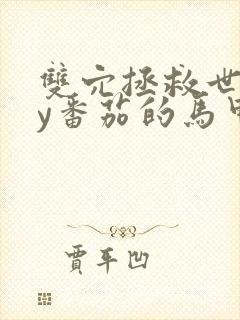 雙穴拯救世
y番茄的馬甲
賈平凹